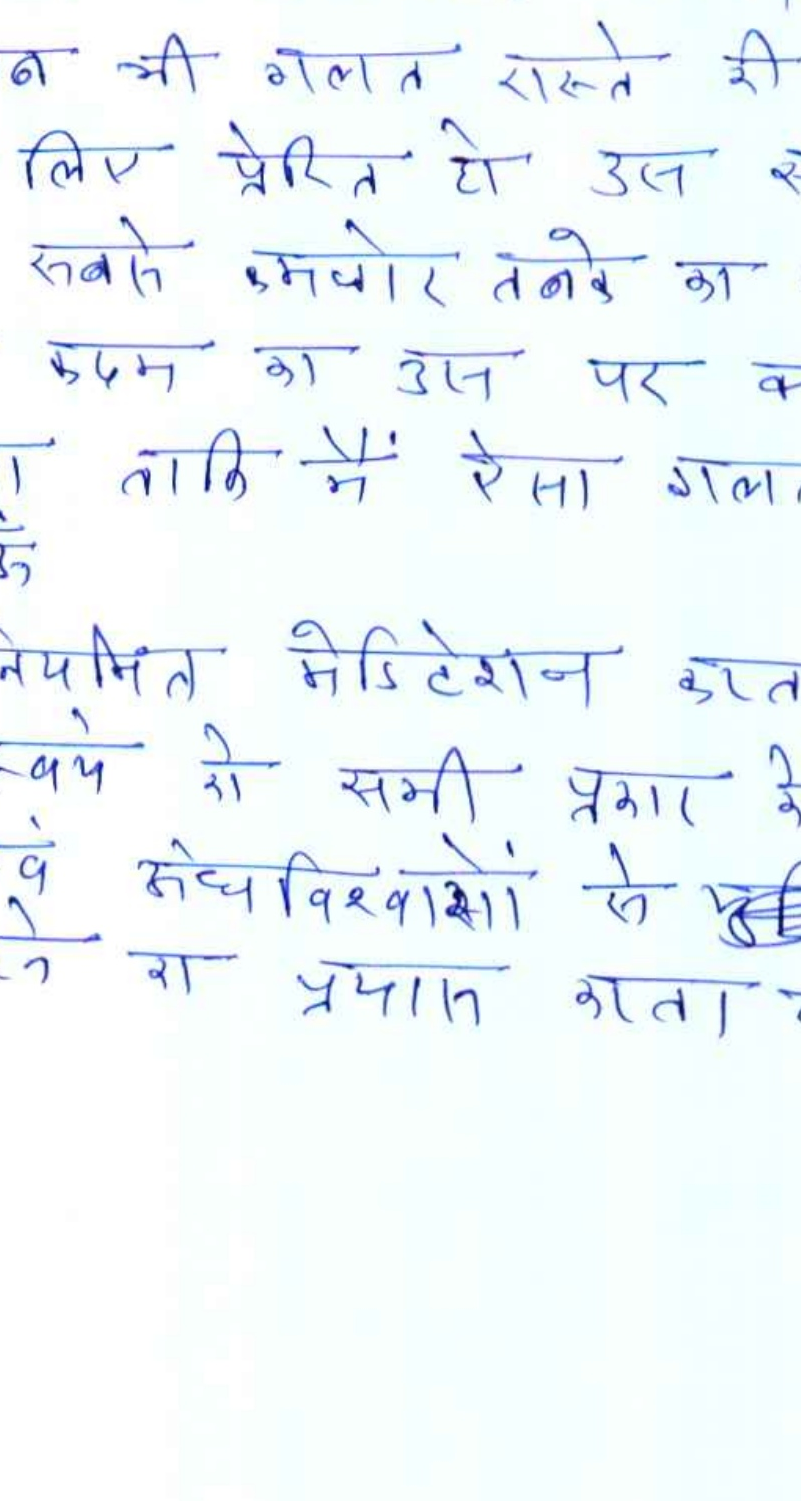 भी गलत रास्ते की
लिए प्रेरित हो उस
सबसे कमजोर तबके का
कदम का उस पर
ताकि मैं ऐसा गलत
नियमित मेडिटेशन करत
स्वयं को सभी प्रकार के
एवं अंधविश्वासों से
का प्रयास करता